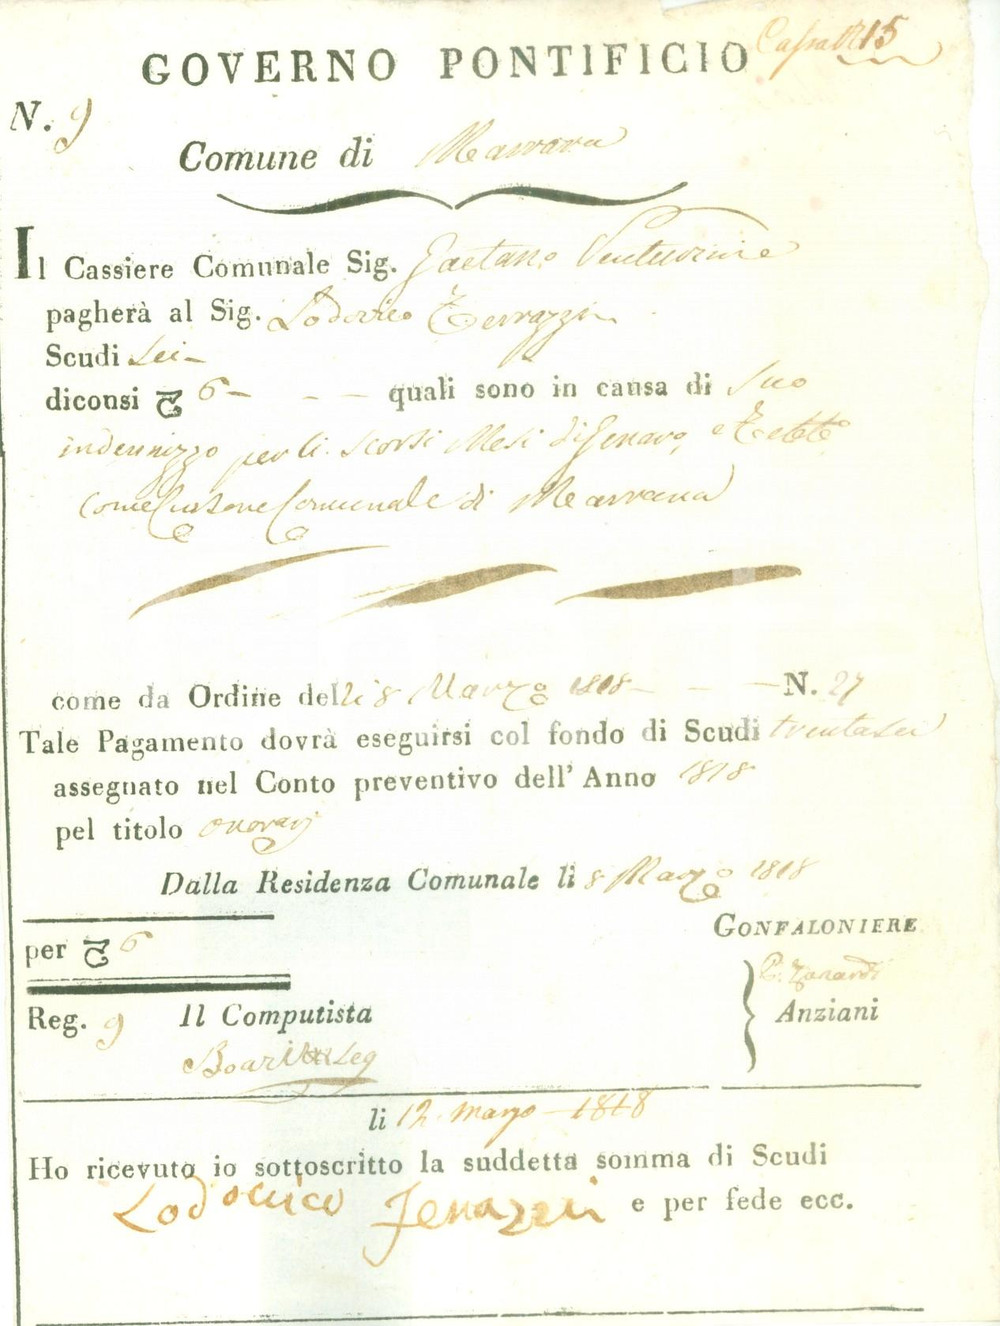 Cassa N. 15
GOVERNO PONTIFICIO
N. 9
Comune di Marrara
Il Cassiere Comunale Sig. Gaetano Venturini
pagherà al Sig. Lodovico Terrazzi
Scudi Sei
diconsi 6 - - - quali sono in causa di suo
indennizzo per li scorsi Mesi di Genaro, e
Come Cursore Comunale di Marrara
come da Ordine delli 8 Marzo 1818 - - - N. 27
Tale Pagamento dovrà eseguirsi col fondo di Scudi trentasei
assegnato nel Conto preventivo dell' Anno 1818
pel titolo onorarj
Dalla Residenza Comunale lì 8 Marzo 1818
GONFALONIERE
per 6
Zanardi
Reg. 9 Il Computista Anziani
Boari
li 12 marzo 1818
Ho ricevuto io sottoscritto la suddetta somma di Scudi
Lodovico Terrazzi e per fede ecc.